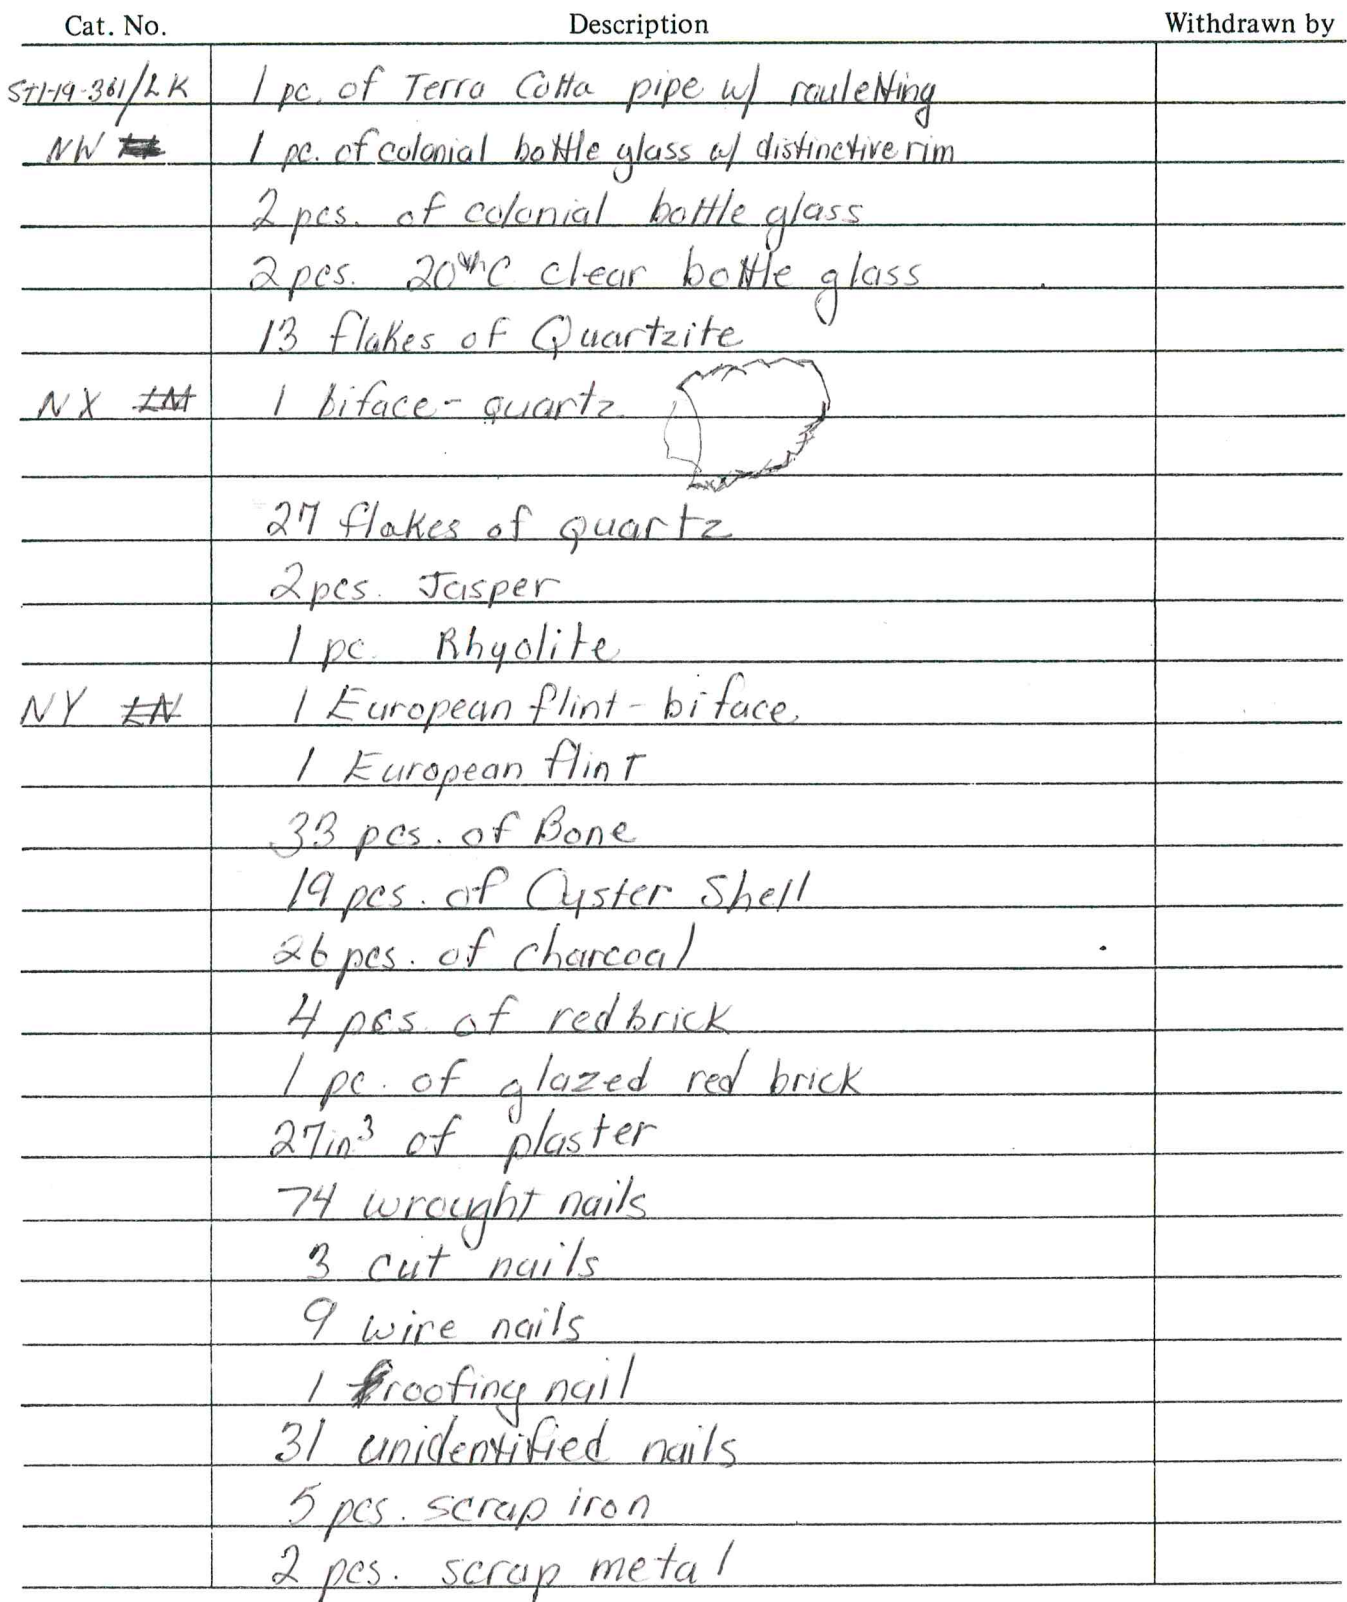 Cat. No. Description Withdrawn by
ST1-19-361/LK 1 pc. of Terra Cotta pipe w/ rouletting
NW 1 pc. of colonial bottle glass w/ distinctive rim
2 pcs. of colonial bottle glass
2 pcs. 20thC clear bottle glass
13 flakes of Quartzite
NX LM 1 biface - quartz
27 flakes of quartz
2 pcs. Jasper
1 pc. Rhyolite
NY LN 1 European flint - biface
1 European flint
33 pcs. of Bone
19 pcs. of Oyster Shell
26 pcs. of charcoal
4 pcs. of red brick
1 pc. of glazed red brick
27in³ of plaster
74 wrought nails
3 cut nails
9 wire nails
1 roofing nail
31 unidentified nails
5 pcs. scrap iron
2 pcs. scrap metal